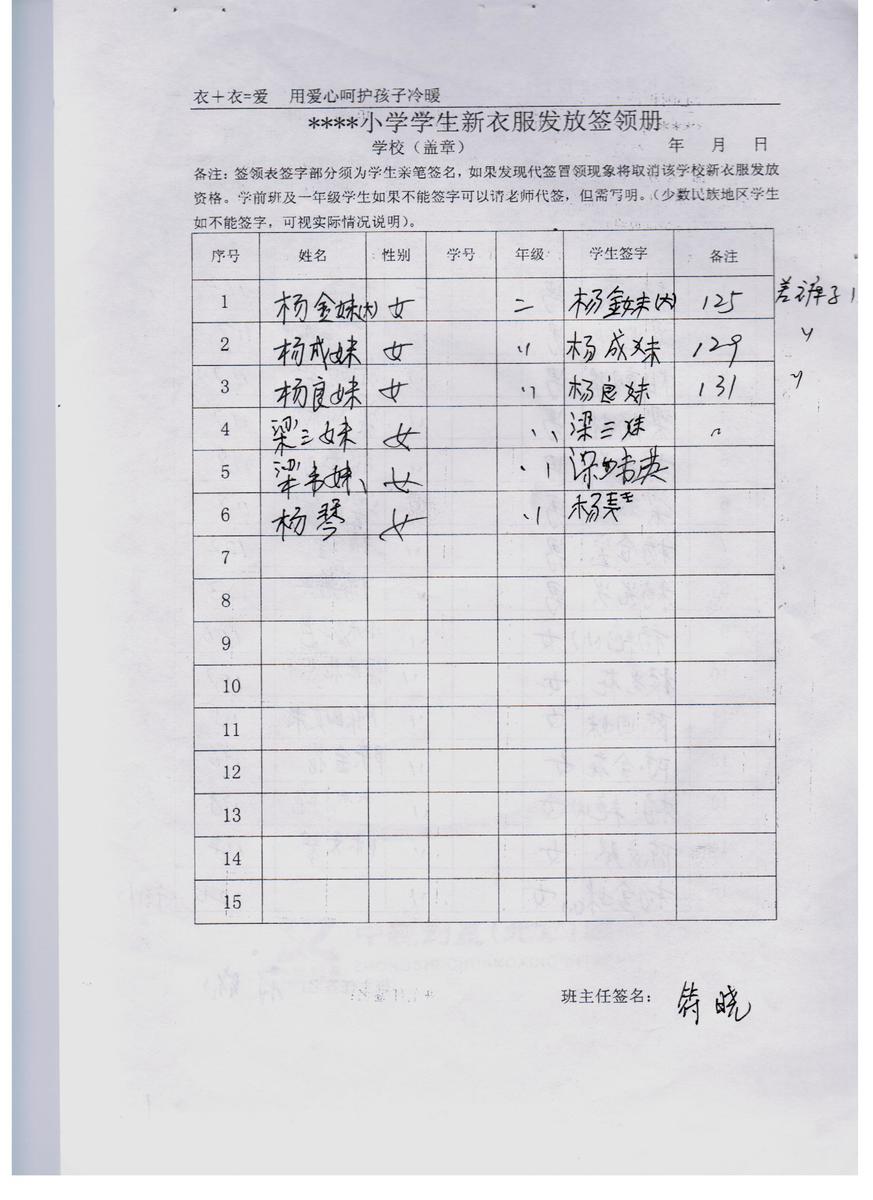 衣＋衣=爱 用爱心呵护孩子冷暖
****小学学生新衣服发放签领册
学校（盖章） 年 月 日
备注：签领表签字部分须为学生亲笔签名，如果发现代签冒领现象将取消该学校新衣服发放
资格。学前班及一年级学生如果不能签字可以请老师代签，但需写明。（少数民族地区学生
如不能签字，可视实际情况说明）。
序号 姓名 性别 学号 年级 学生签字 备注
1 杨金妹(大) 女 二 杨金妹(大) 125 差裤子1
2 杨成妹 女 〃 杨成妹 129 〃
3 杨良妹 女 〃 杨良妹 131 〃
4 梁三妹 女 〃 梁三妹 〃
5 梁 妹 女 〃 梁
6 杨琴 女 〃 杨
7
8
9
10
11
12
13
14
15
班主任签名： 符晓